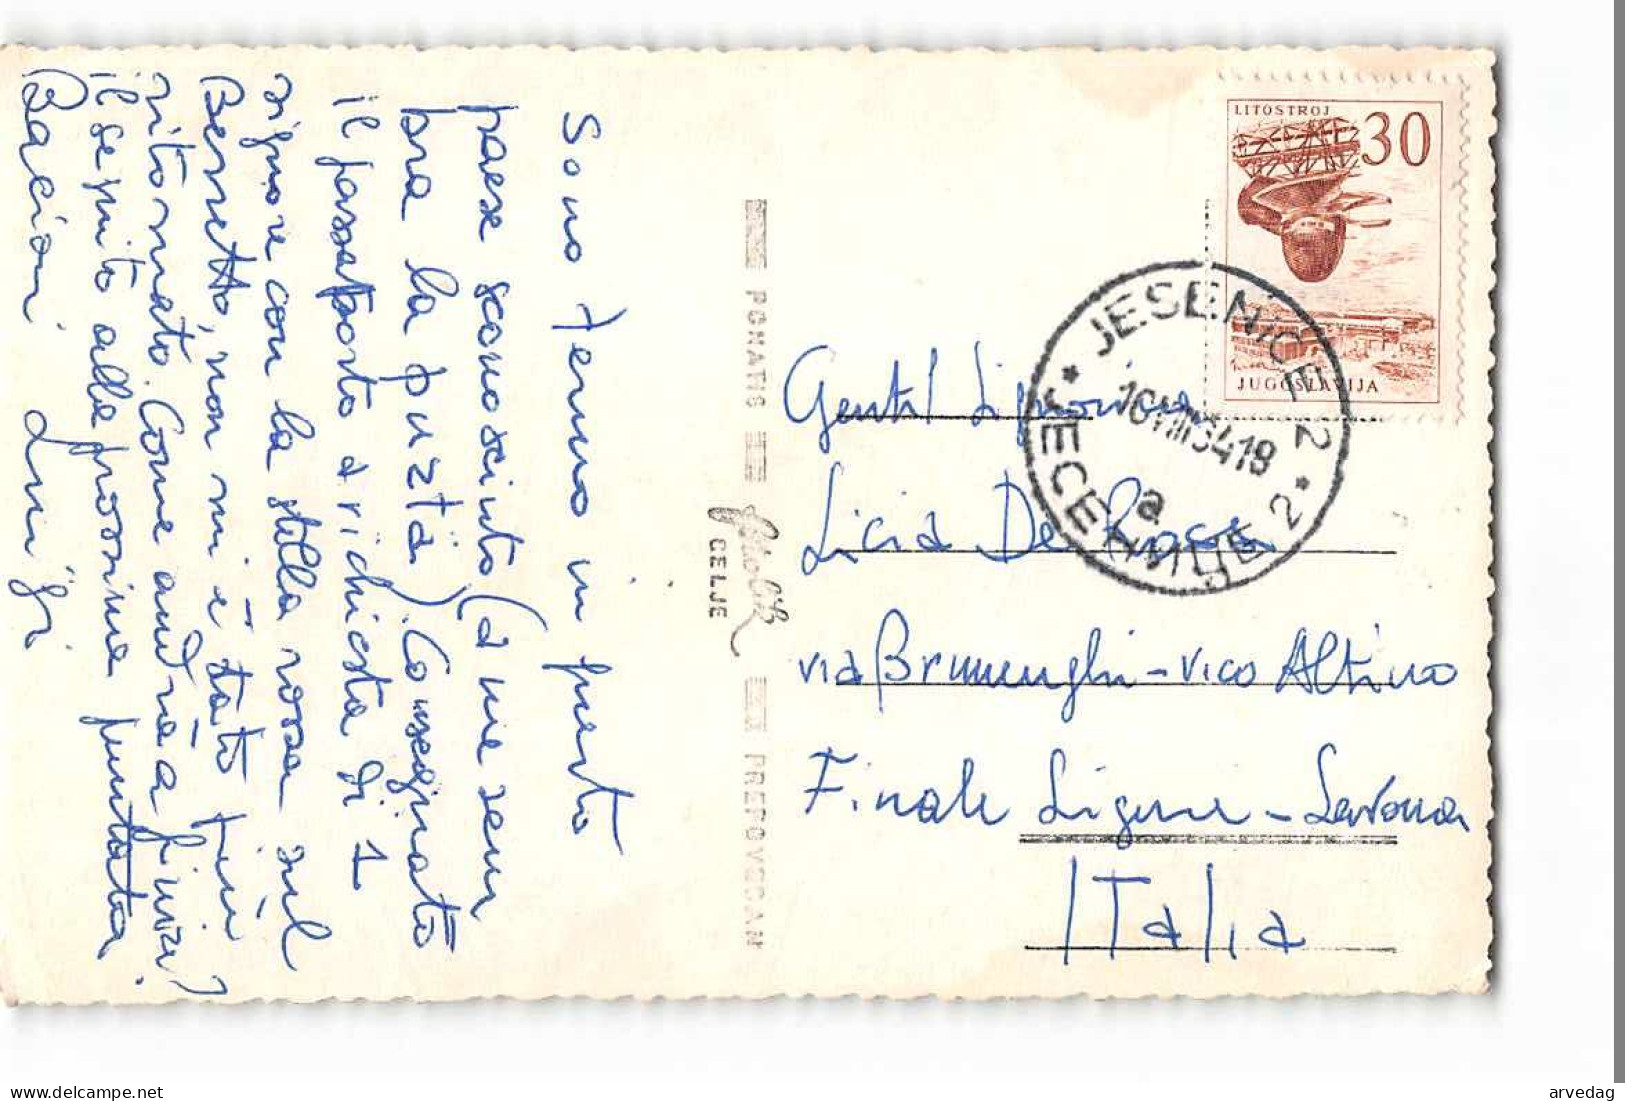 Sono fermo in questo
paese sconosciuto (a me sem
bra la puztä). Consegnato
il passaporto a richiesta di 1
signore con la stella rossa sul
Berretto, non mi è stato più
ritornato. Come andrà a finire?
il seguito alla prossima puntata.
Bacioni Luigi
POHATIS
CELJE
PREPOVEDAN
LITOSTROJ
30
JUGOSLAVIJA
JESENICE 2
16 VIII 64 18
a
ЈЕСЕНИЦЕ 2
Gentil Signorina
Licia De
via Brunenghi - vico Altino
Finale Ligure - Savona
ITalia
www.delcampe.net
arvedag